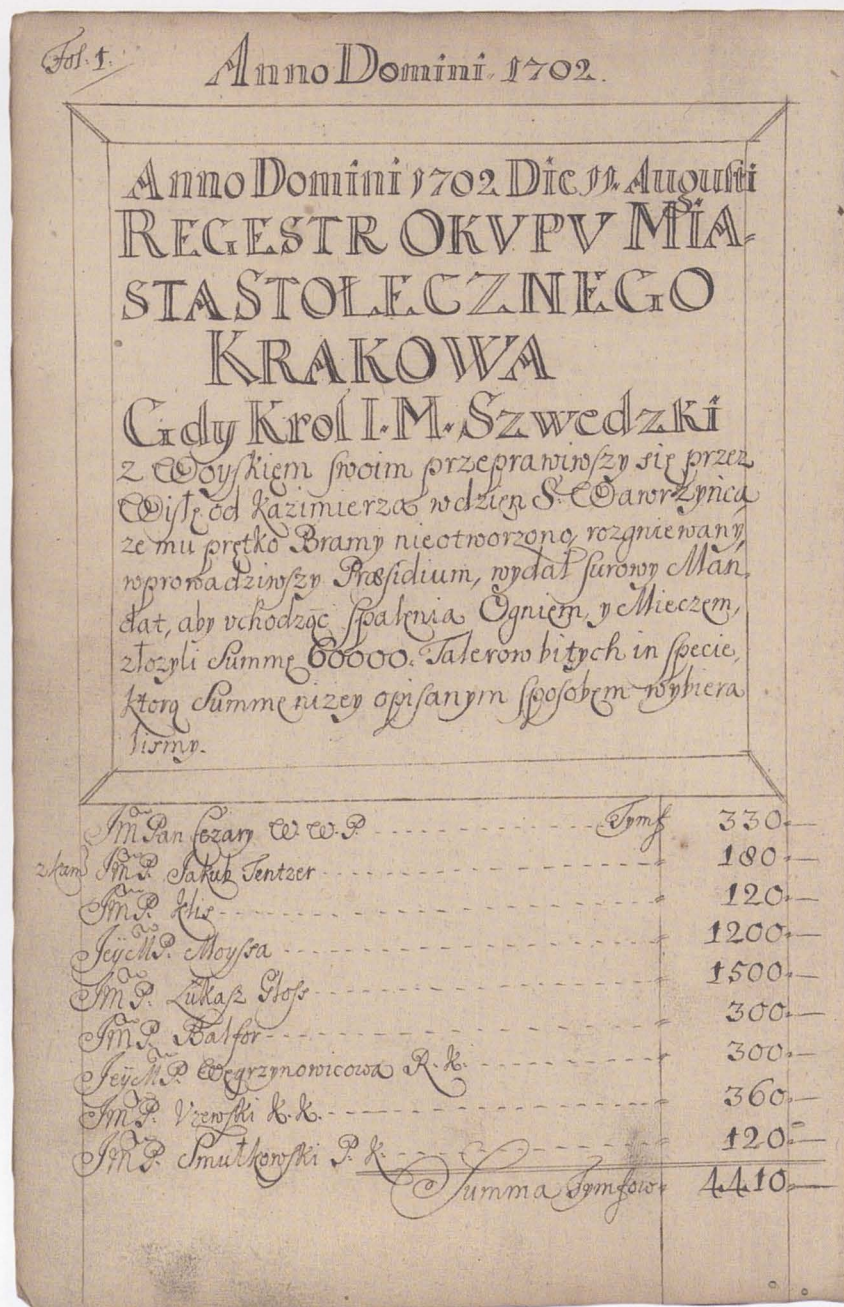 Fol. 1.
Anno Domini 1702.
Anno Domini 1702 Die 11. Augusti
REGESTR OKVPV MIA-
STA STOŁECZNEGO
KRAKOWA
Gdy Krol I. M. Szwedzki
z Woyskięm swoim przeprawiwszy się przez
Wisłę od Kazimierza w dzięn S. Wawrzyńca
że mu prętko Bramy nieotworzono, rozgniewany,
wprowadziwszy Præsidium, wydał surowy Man-
dat, aby vchodząc spalęnia Ogniem, y Mieczem,
złożyli Summę 60000. Talerow bitych in specie,
ktorą Summę niżey opisanym sposobęm wybiera
lismy.
Jm̃ Pan Cezary W. W. P. Tymf 330
Jm̃ P. Jakub Tentzer 180
Jm̃ P. Klis 120
Jeÿ M̃ P. Moyssa 1200
Jm̃ P. Łukasz Głoss 1500
Jm̃ P. Balfor 300
Jeÿ M̃ P. Węgrzynowicowa R. K. 300
Jm̃ P. Vzewski K. K. 360
Jm̃ P. Smułkowski P. K. 120
Summa Tymfow 4410